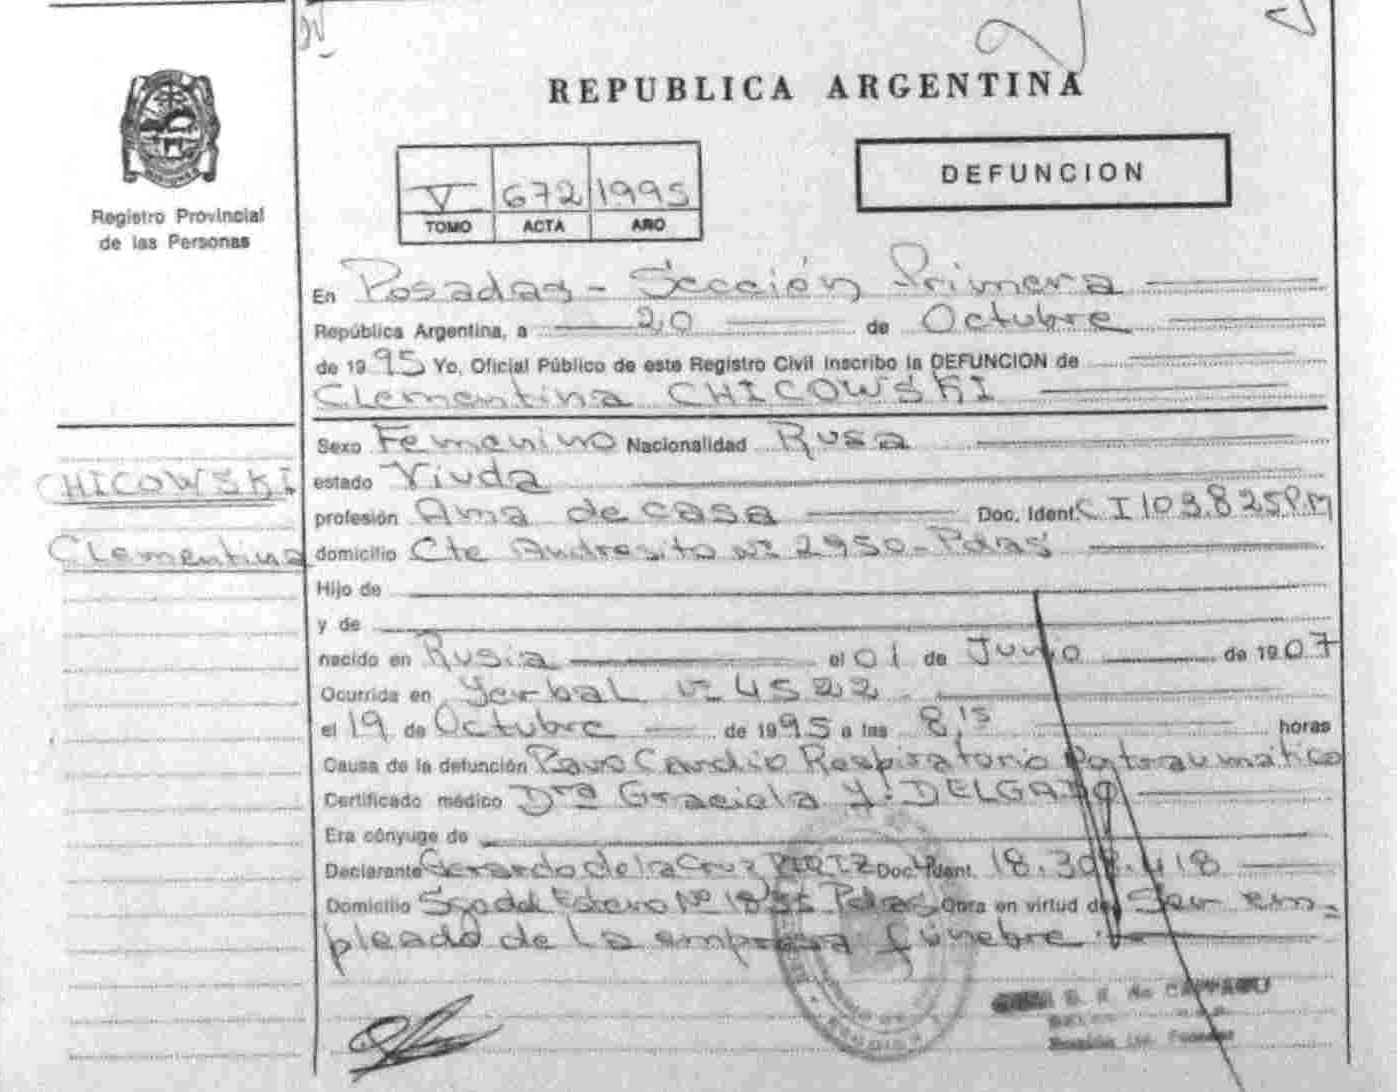 REPUBLICA ARGENTINA
Registro Provincial
de las Personas
V 672 1995
TOMO ACTA AÑO
DEFUNCION
En Posadas - Sección Primera
República Argentina, a 20 de Octubre
de 1995 Yo, Oficial Público de este Registro Civil Inscribo la DEFUNCION de
Clementina CHICOWSKI
CHICOWSKI
Clementina
Sexo Femenino Nacionalidad Rusa
estado Viuda
profesión Ama de casa Doc. Ident. C I 103.825 P.M
domicilio Cte Andresito Nº 2950 - Pdas
Hijo de
y de
nacido en Rusia el 01 de Junio de 1907
Ocurrida en Yerbal Nº 4522
el 19 de Octubre de 1995 a las 8,15 horas
Causa de la defunción Paro Cardio Respiratorio
Certificado médico Drª Graciela Y. DELGADO
Era cónyuge de
Declarante Gerardo de la Cruz Doc. Ident. 18.308.418
Domicilio Sgo del Estero Nº Pdas Obra en virtud de Ser em-
pleado de la empresa fúnebre.